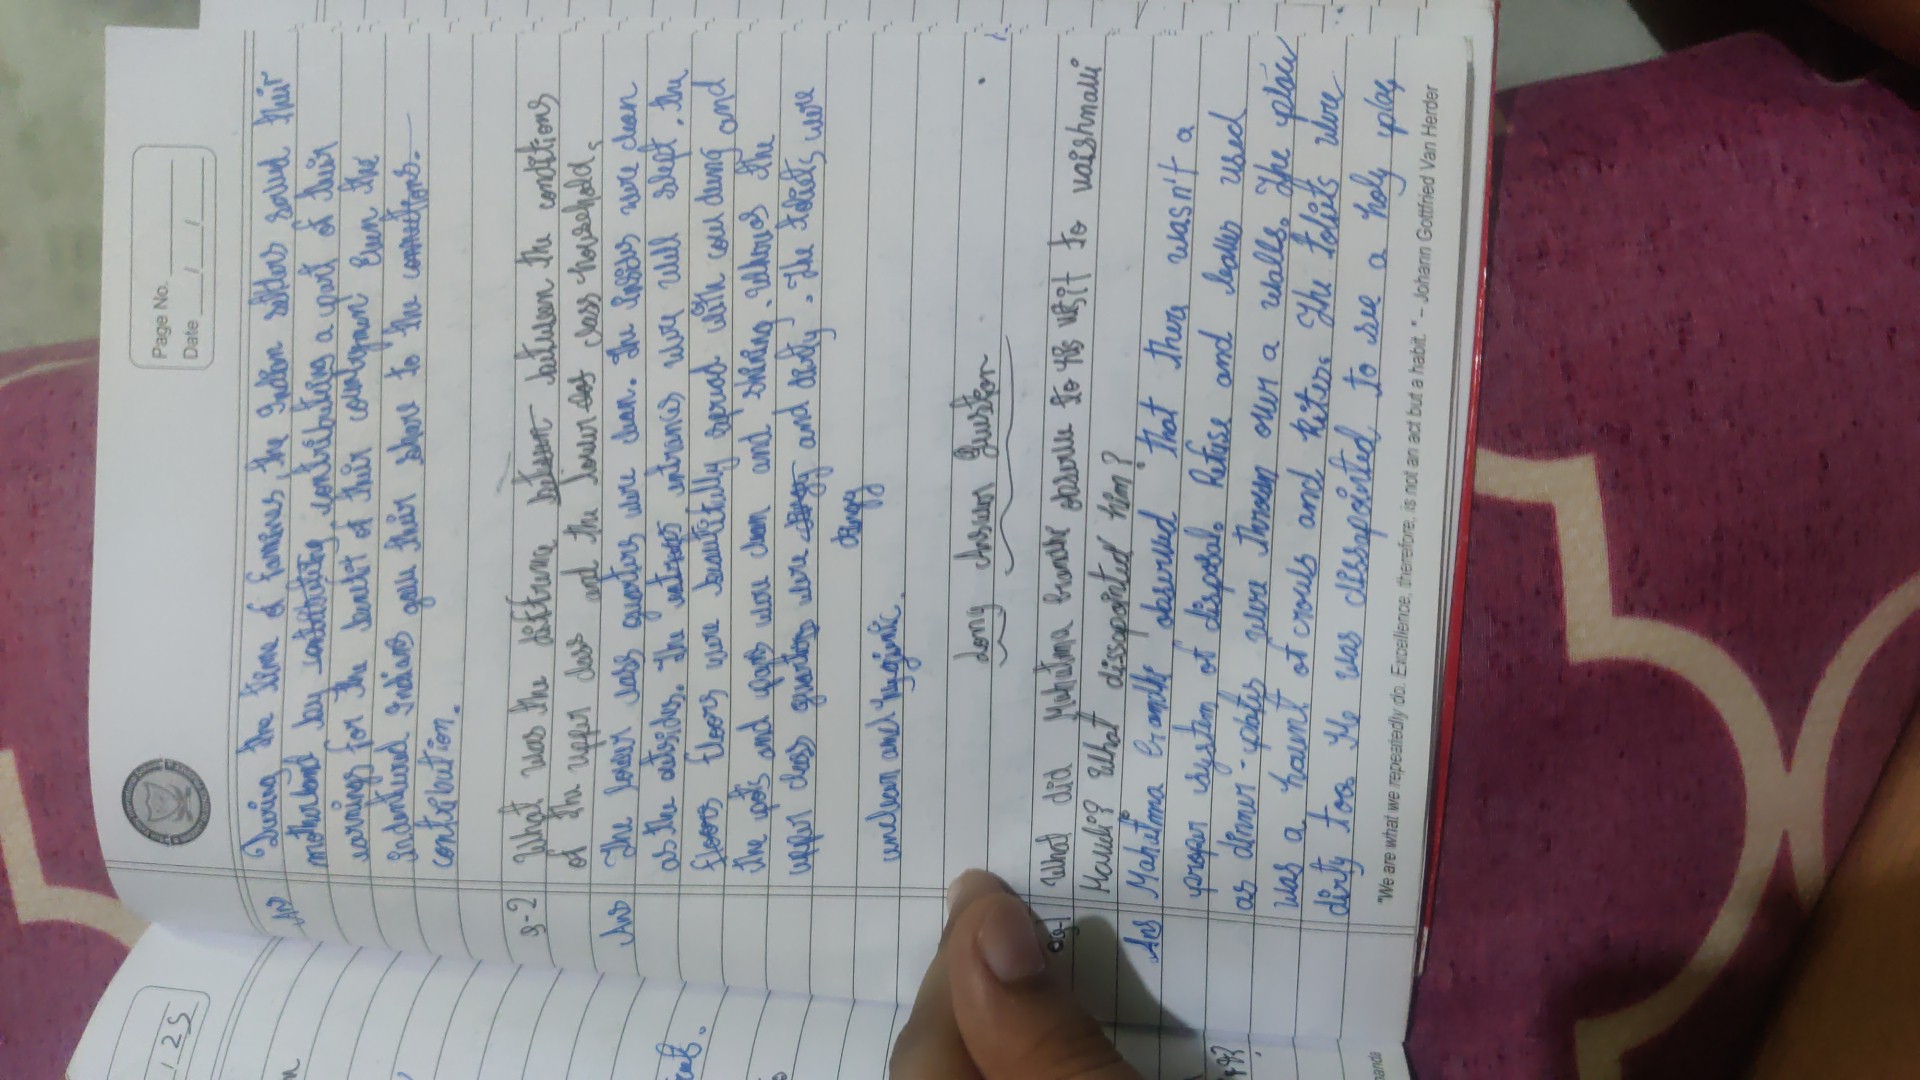 Page No.
Date / /
Ans During the time of famines, the Indian settlers served their
motherland by contributing a part of their
earnings for the benefit of their countrymen Even the
Indentured Indians gave their share to the
contribution.
Q-2 What was the between the conditions
of the upper class and the lower class household.
Ans The lower class quarters were clean. The insides were clean
as the outsides. The entrances were well slept. the
floors were beautifully spread with cow dung and
the pots and pans were clean and shining. Whereas the
upper class quarters were and dirty. The toilets were
dingy
unclean and hyginic.
Long Answer Question
Q-1 What did Mahatma observe to his visit to vaishnavli
Haveli? What dissapointed him?
Ans Mahatma Gandhi observed that there wasn't a
proper system of disposal. Refuse and leaves used
as dinner-plates were thrown over a walls. The place
was a haunt of crows and kites. The toliets were
dirty too He was dissapointed to see a holy place
"We are what we repeatedly do. Excellence, therefore, is not an act but a habit." – Johann Gottfried Van Herder
/ 25